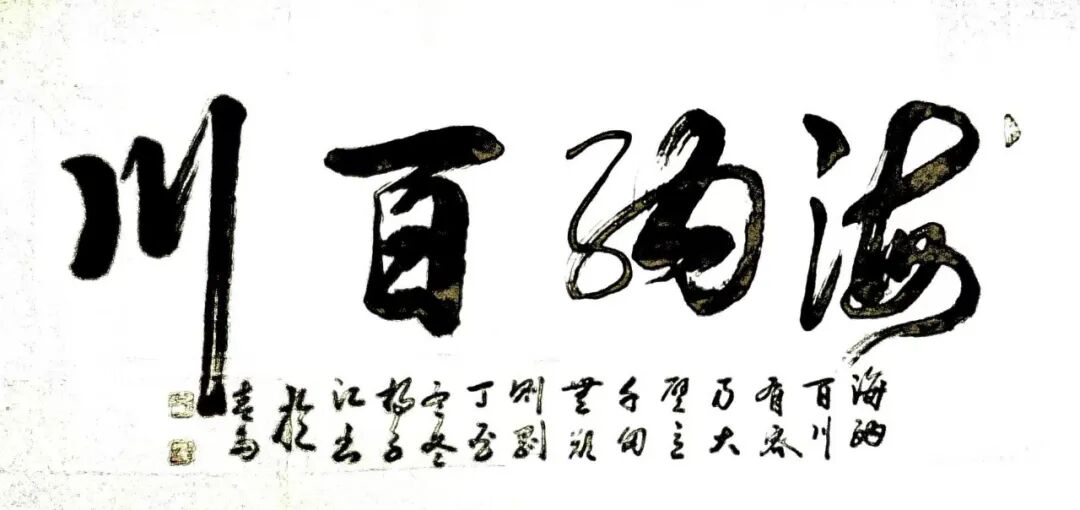 海納百川
海納
百川
有容
乃大
壁立
千仞
無欲
則剛
丁亥
之冬
楊子
江書
於
青島